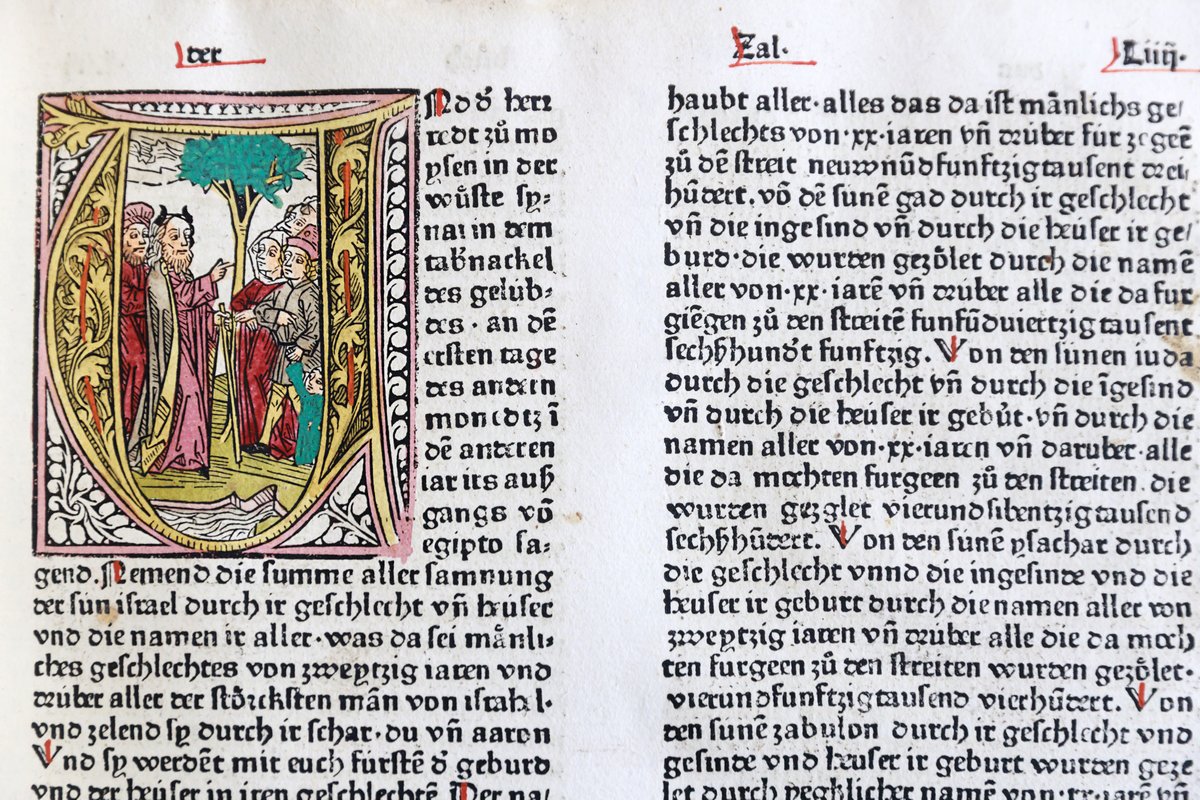 der
Zal·
Liiij·
Nd d' herr
redt zů mo
ysen in der
wůste sy⸗
nai in dem
tab'nackel
des gelúb⸗
des · an dē
ersten tage
des andern
monedtz ī
dē anderen
iar irs auß
gangs vō
egipto sa⸗
gend. Nemend die summe aller samnung
der sun israel durch ir geschlecht vñ heúser
vnd die namen ir aller · was da sei männli⸗
ches geschlechtes von zweytzig iaren vnd
drúber aller der störcksten män von israhel·
vnd zelend sy durch ir schar · du vñ aaron
Vnd sy werdēt mit euch fúrstē d' geburd
vnd der heúser in iren geschlechtē. Der na/
haubt aller · alles das da ist mānlichs ge/
schlechts von · xx · iaren vñ drúber fúr zegeē
zů dē streit neúwnūdfunftzigtausent drei
hūdert. vō dē súnē gad durch ir geschlecht
vñ die ingesind vñ durch die heúser ir ge/
burd · die wurden gezölet durch die namē
aller von · xx · iarē vñ drúber alle die da fúr
giēgen zů den streitē funfūduiertzigtausent
sechßhund't funftzig. Von den súnen iuda
durch die geschlecht vñ durch die īgesind
vñ durch die heúser ir gebůt · vñ durch die
namen aller von · xx · iaren vñ darúber · alle
die da mochten fúrgeen zů den streiten. die
wurden gezglet vierundsibentzigtausend
sechßhūdert. Von den súnē ysachar durch
die geschlecht vnnd die ingesinde vnd die
heúser ir geburt durch die namen aller von
zweytzig iaren vñ drúber alle die da moch
ten fúrgeen zů den streiten wurden gezölet·
vierundfunftzigtausend vierhūdert. Von
den súnē zabulon durch ir geschlecht vnd
gesinde vnd heúser ir geburt wurden geze
let durch yegklicher namē von · xx · iarē vñ